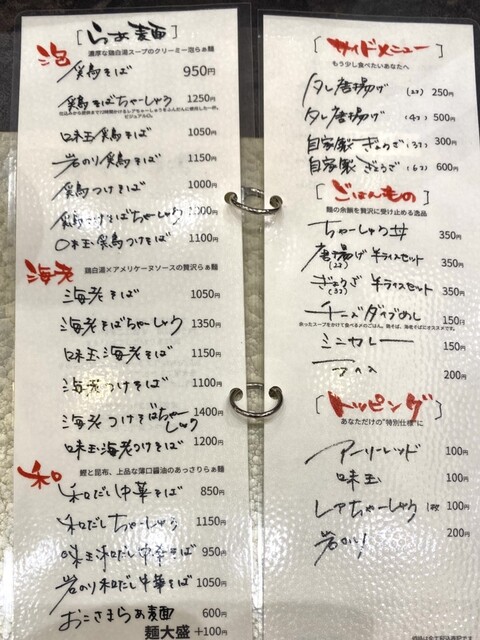 [らぁ麺]
泡
濃厚な鶏白湯スープのクリーミー泡らぁ麺
鶏そば 950円
鶏そばちゃーしゅう 1250円
味玉鶏そば 1050円
岩のり鶏そば 1150円
鶏つけそば 1000円
鶏つけそばちゃーしゅう 1300円
味玉鶏つけそば 1100円
海老
鶏白湯×アメリケーヌソースの贅沢らぁ麺
海老そば 1050円
海老そばちゃーしゅう 1350円
味玉海老そば 1150円
海老つけそば 1100円
海老つけそばちゃーしゅう 1400円
味玉海老つけそば 1200円
和
鰹と昆布、上品な薄口醤油のあっさりらぁ麺
和だし中華そば 850円
和だしちゃーしゅう 1150円
味玉和だし中華そば 950円
岩のり和だし中華そば 1050円
おこさまらぁ麺 600円
麺大盛 +100円
[サイドメニュー]
もう少し食べたいあなたへ
タレ唐揚げ (2コ) 250円
タレ唐揚げ (4コ) 500円
自家製ぎょうざ (3コ) 300円
自家製ぎょうざ (6コ) 600円
[ごはんもの]
麺の余韻を贅沢に受け止める逸品
ちゃーしゅう丼 350円
唐揚げ(2コ)半ライスセット 350円
ぎょうざ(3コ)半ライスセット 350円
チーズダイブめし 150円
余ったスープをかけて食べる〆のごはん。鶏そば、海老そばにオススメです。
ミニカレー 350円
ライス 200円
[トッピング]
あなただけの"特別仕様"に
アーリーレッド 100円
味玉 100円
レアちゃーしゅう 1枚 100円
岩のり 200円
価格は全て税込表記です